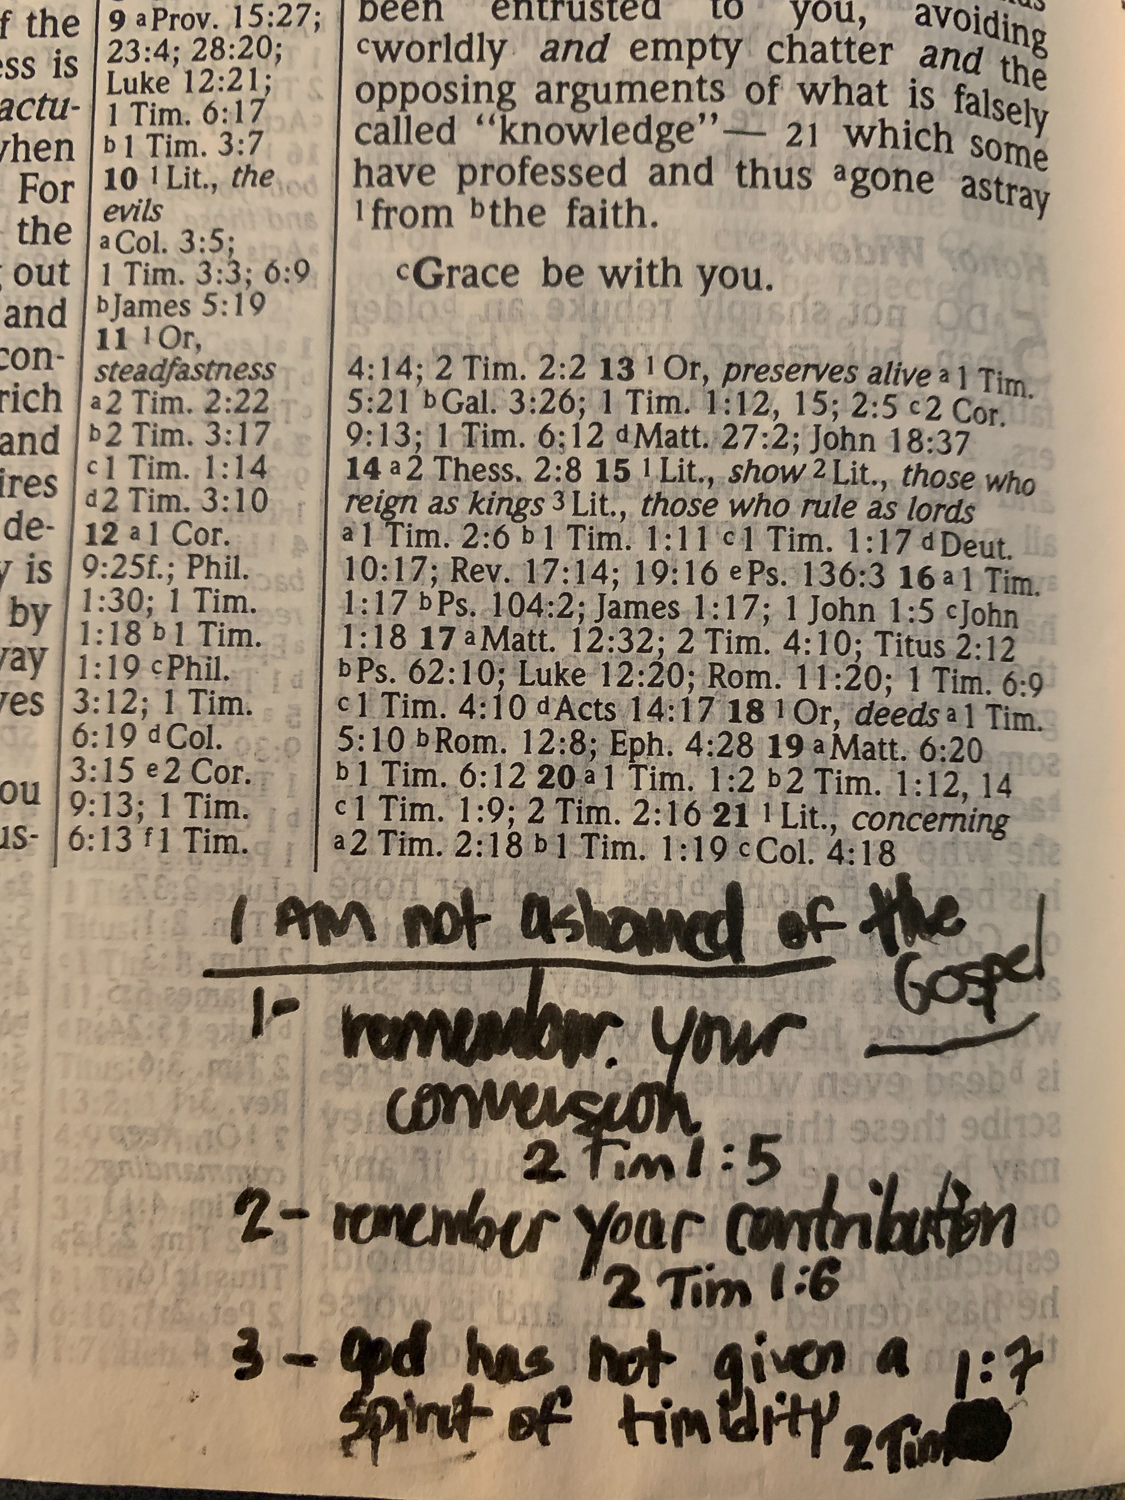 f the
ess is
actu-
when
For
the
out
and
con-
rich
and
ires
de-
y is
by
way
ves
ou
us-
9 a Prov. 15:27;
23:4; 28:20;
Luke 12:21;
1 Tim. 6:17
b 1 Tim. 3:7
10 1 Lit., the
evils
a Col. 3:5;
1 Tim. 3:3; 6:9
b James 5:19
11 1 Or,
steadfastness
a 2 Tim. 2:22
b 2 Tim. 3:17
c 1 Tim. 1:14
d 2 Tim. 3:10
12 a 1 Cor.
9:25f.; Phil.
1:30; 1 Tim.
1:18 b 1 Tim.
1:19 c Phil.
3:12; 1 Tim.
6:19 d Col.
3:15 e 2 Cor.
9:13; 1 Tim.
6:13 f 1 Tim.
been entrusted to you, avoiding
c worldly and empty chatter and the
opposing arguments of what is falsely
called "knowledge"— 21 which some
have professed and thus a gone astray
1 from b the faith.
c Grace be with you.
4:14; 2 Tim. 2:2 13 1 Or, preserves alive a 1 Tim.
5:21 b Gal. 3:26; 1 Tim. 1:12, 15; 2:5 c 2 Cor.
9:13; 1 Tim. 6:12 d Matt. 27:2; John 18:37
14 a 2 Thess. 2:8 15 1 Lit., show 2 Lit., those who
reign as kings 3 Lit., those who rule as lords
a 1 Tim. 2:6 b 1 Tim. 1:11 c 1 Tim. 1:17 d Deut.
10:17; Rev. 17:14; 19:16 e Ps. 136:3 16 a 1 Tim.
1:17 b Ps. 104:2; James 1:17; 1 John 1:5 c John
1:18 17 a Matt. 12:32; 2 Tim. 4:10; Titus 2:12
b Ps. 62:10; Luke 12:20; Rom. 11:20; 1 Tim. 6:9
c 1 Tim. 4:10 d Acts 14:17 18 1 Or, deeds a 1 Tim.
5:10 b Rom. 12:8; Eph. 4:28 19 a Matt. 6:20
b 1 Tim. 6:12 20 a 1 Tim. 1:2 b 2 Tim. 1:12, 14
c 1 Tim. 1:9; 2 Tim. 2:16 21 1 Lit., concerning
a 2 Tim. 2:18 b 1 Tim. 1:19 c Col. 4:18
I AM not ashamed of the
Gospel
1- remember your
conversion
2 Tim 1:5
2- remember your contribution
2 Tim 1:6
3 - god has not given a 1:7
spirit of timidity 2 Tim